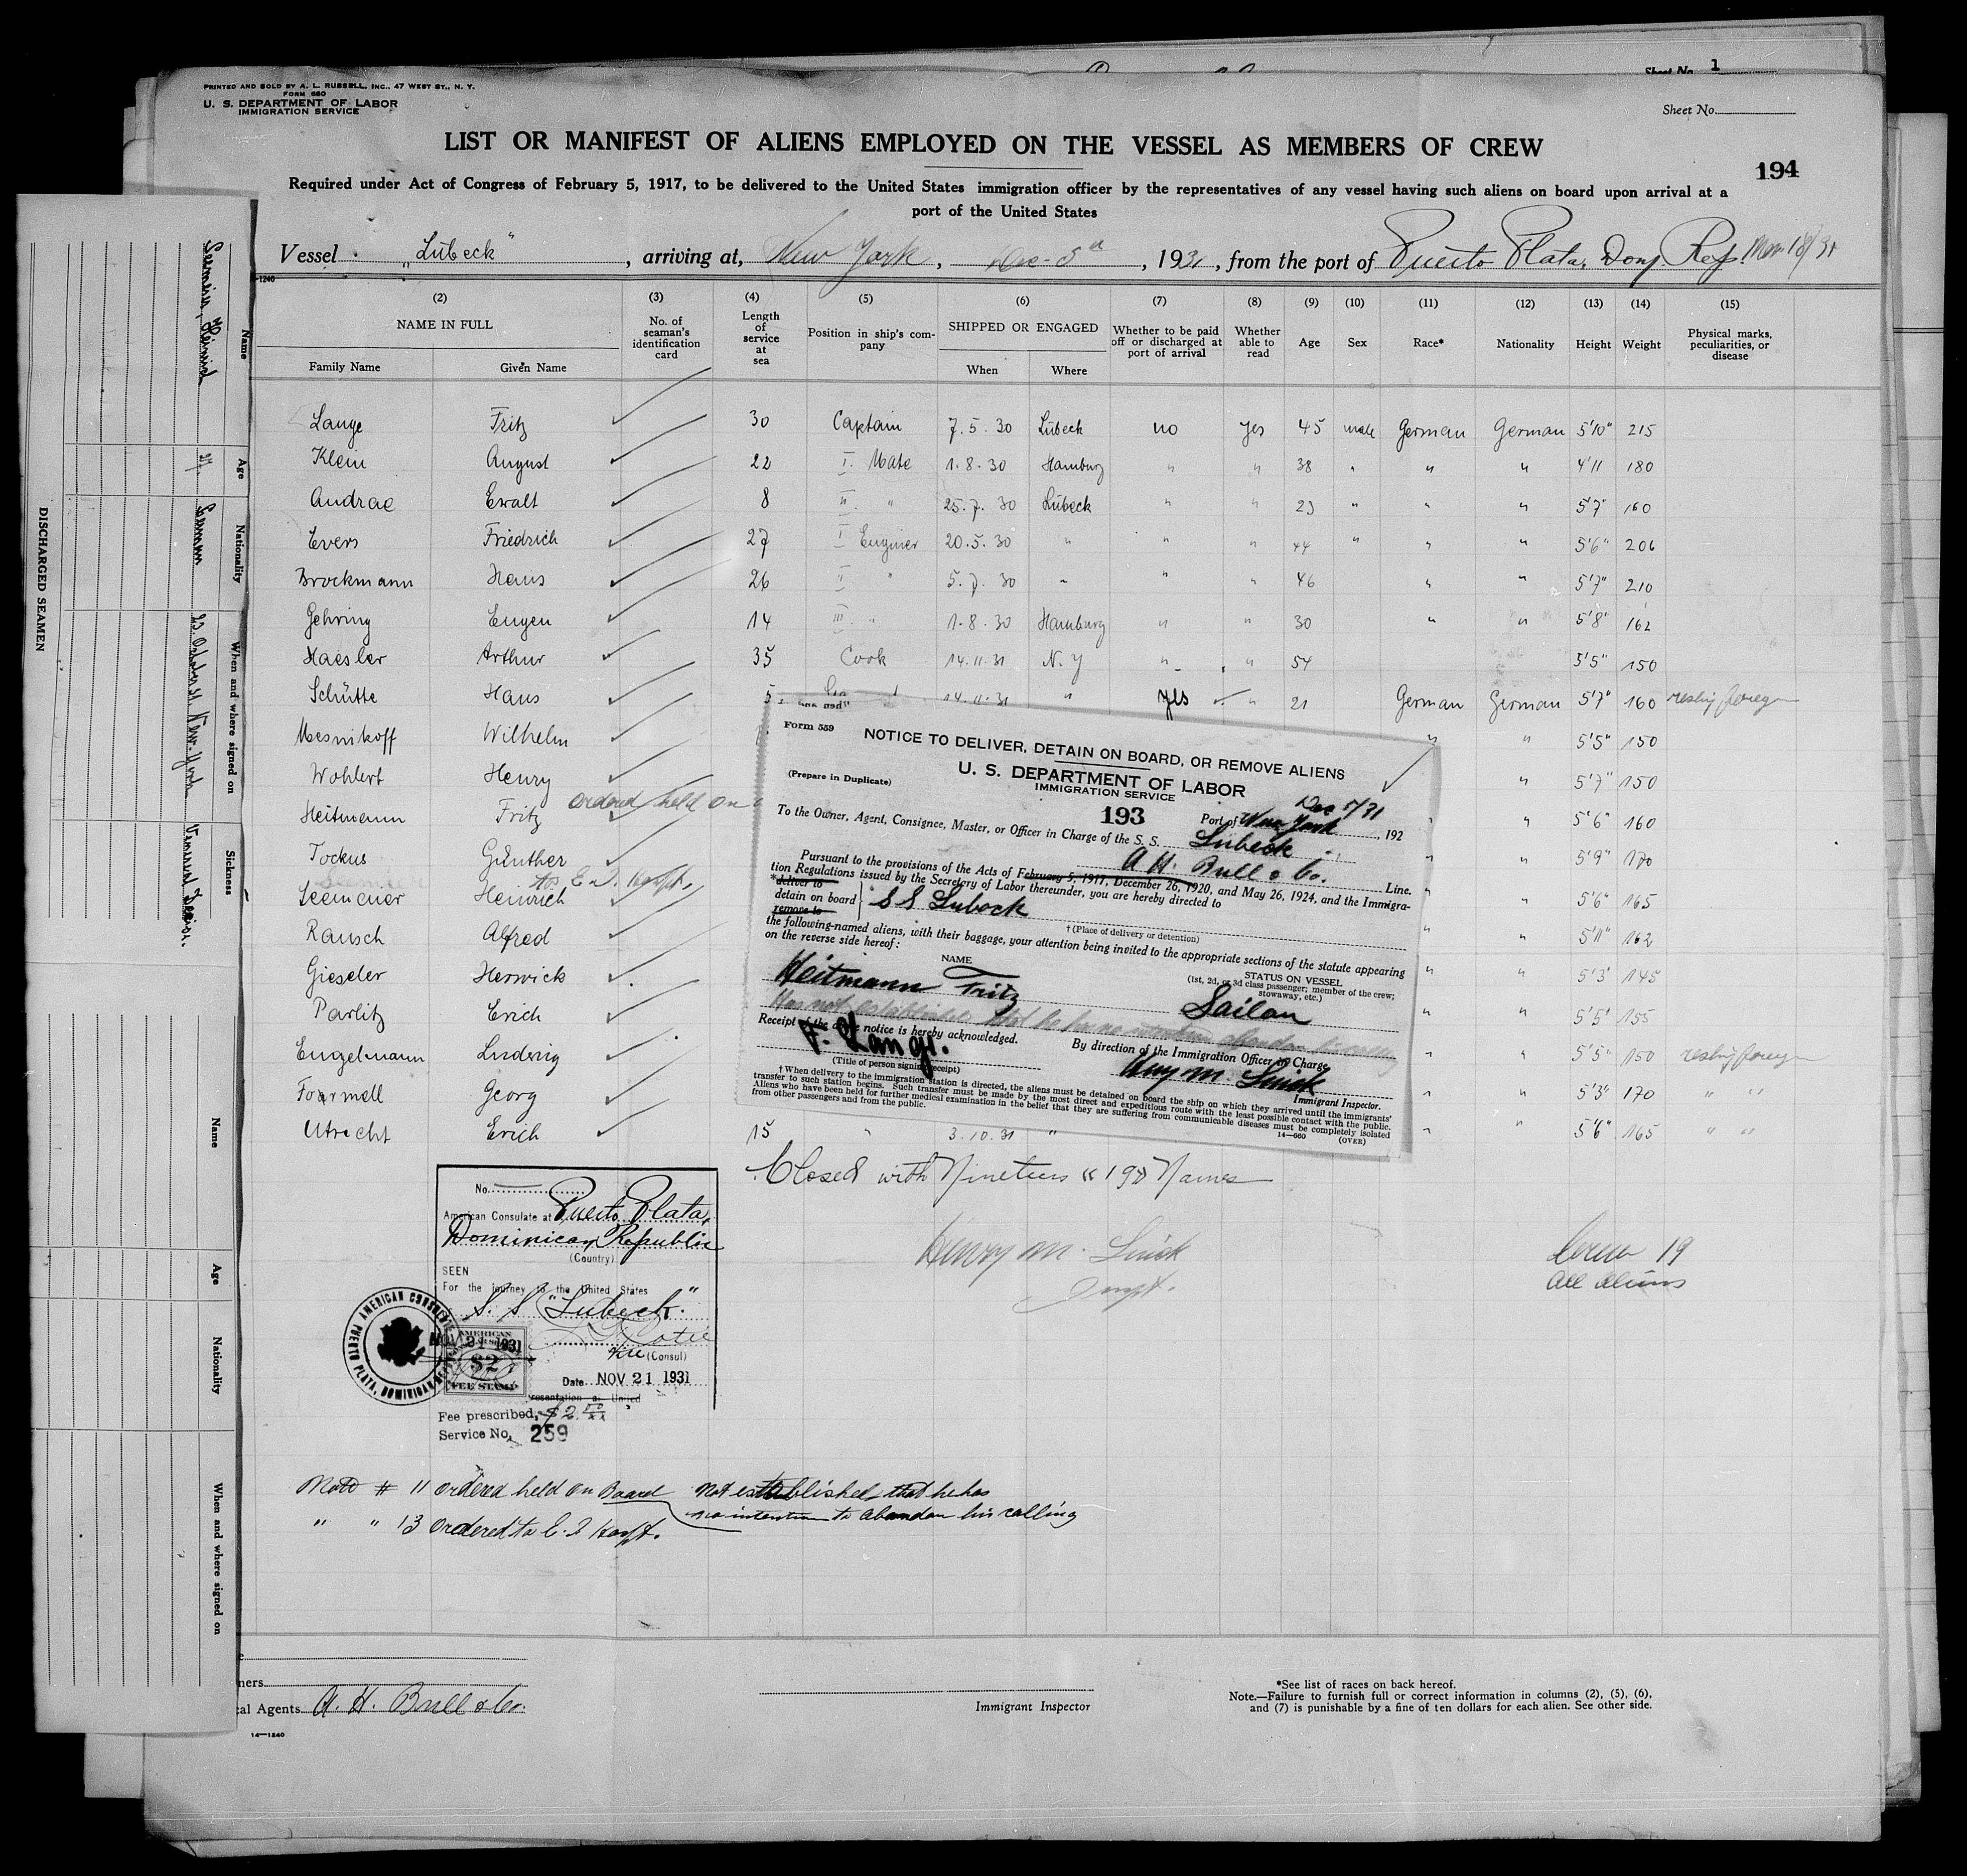 Sheet No. 1
PRINTED AND SOLD BY A. L. RUSSELL, INC., 47 WEST ST., N. Y.
FORM 680
U. S. DEPARTMENT OF LABOR
IMMIGRATION SERVICE
Sheet No.
LIST OR MANIFEST OF ALIENS EMPLOYED ON THE VESSEL AS MEMBERS OF CREW
194
Required under Act of Congress of February 5, 1917, to be delivered to the United States immigration officer by the representatives of any vessel having such aliens on board upon arrival at a
port of the United States
Vessel "Lübeck", arriving at, New York, Dec-5th, 1931, from the port of Puerto Plata, Dom. Rep.
-1240
(2) (3) (4) (5) (6) (7) (8) (9) (10) (11) (12) (13) (14) (15)
NAME IN FULL
Family Name Given Name
No. of seaman's identification card
Length of service at sea
Position in ship's company
SHIPPED OR ENGAGED
When Where
Whether to be paid off or discharged at port of arrival
Whether able to read
Age Sex Race* Nationality Height Weight
Physical marks, peculiarities, or disease
Lange Fritz 30 Captain 7.5.30 Lübeck no yes 45 male German German 5'10" 215
Klein August 22 I. Mate 1.8.30 Hamburg " " 38 " " " 4'11 180
Andrae Ewalt 8 II. " 25.7.30 Lübeck " " 23 " " " 5'7" 160
Evers Friedrich 27 I Enginer 20.5.30 " " " 44 " " " 5'6" 206
Brockmann Hans 26 II " 5.7.30 " " " 46 " " 5'7" 210
Gehring Eugen 14 III " 1.8.30 Hamburg " " 30 " " 5'8" 162
Haesler Arthur 35 Cook 14.11.31 N.Y " " 54 5'5" 150
Schütte Hans 5 14.11.31 " yes " 21 German German 5'7" 160
Mesnikoff Wilhelm " " 5'5" 150
Wohlert Henry " 5'7" 150
ordered held on
Heitmann Fritz " " 5'6" 160
Tockus Günther " " 5'9" 170
to E. I. Hospt.
Seemener Heinrich " " 5'6" 165
Rausch Alfred " " 5'11" 162
Gieseler Herwick " " 5'3' 145
Parlitz Erich " " 5'5' 155
Engelmann Ludwig " " 5'5" 150
Foormell Georg " " 5'3" 170 " "
Utrecht Erich 15 " 3.10.31 " " " 5'6" 165 " "
Form 559
NOTICE TO DELIVER, DETAIN ON BOARD, OR REMOVE ALIENS
(Prepare in Duplicate)
U. S. DEPARTMENT OF LABOR
IMMIGRATION SERVICE
193
Dec 5/31
Port of New York, 192
To the Owner, Agent, Consignee, Master, or Officer in Charge of the S. S. Lubeck
A. H. Bull & Co. Line.
Pursuant to the provisions of the Acts of February 5, 1917, December 26, 1920, and May 26, 1924, and the Immigra-
tion Regulations issued by the Secretary of Labor thereunder, you are hereby directed to
*deliver to
detain on board
remove to
S S Lubeck
†(Place of delivery or detention)
the following-named aliens, with their baggage, your attention being invited to the appropriate sections of the statute appearing
on the reverse side hereof:
NAME
STATUS ON VESSEL
(1st, 2d, or 3d class passenger; member of the crew;
stowaway, etc.)
Heitmann Fritz Sailor
Has not established that he has no intention abandon
Receipt of the above notice is hereby acknowledged.
F. Lange.
(Title of person signing receipt)
By direction of the Immigration Officer in Charge
Henry M. Linick
Immigrant Inspector.
†When delivery to the immigration station is directed, the aliens must be detained on board the ship on which they arrived until the immigrants'
transfer to such station begins. Such transfer must be made by the most direct and expeditious route with the least possible contact with the public.
Aliens who have been held for further medical examination in the belief that they are suffering from communicable diseases must be completely isolated
from other passengers and from the public.
14—660 (OVER)
Closed with Nineteen "19" Names
Henry M. Linick
Inspt.
Crew 19
All Aliens
No.
American Consulate at Puerto Plata,
Dominican Republic
(Country)
SEEN
For the journey to the United States
S. S. "Lubeck."
(Consul)
Date NOV 21 1931
Fee prescribed, $2.
Service No. 259
AMERICAN
NOV 21 1931
$2
FEE STAMP
AMERICAN CONSULATE
PUERTO PLATA, DOMINICAN
Note # 11 ordered held on Board Not established that he has
no intention to abandon his calling
" " 13 ordered to E. I. Hospt.
ners
al Agents A. H. Bull & Co.
14—1240
Immigrant Inspector
*See list of races on back hereof.
Note.—Failure to furnish full or correct information in columns (2), (5), (6),
and (7) is punishable by a fine of ten dollars for each alien. See other side.
DISCHARGED SEAMEN
Name Age Nationality When and where signed on Sickness
German 23. October 31. New-York
Name Age Nationality When and where signed on